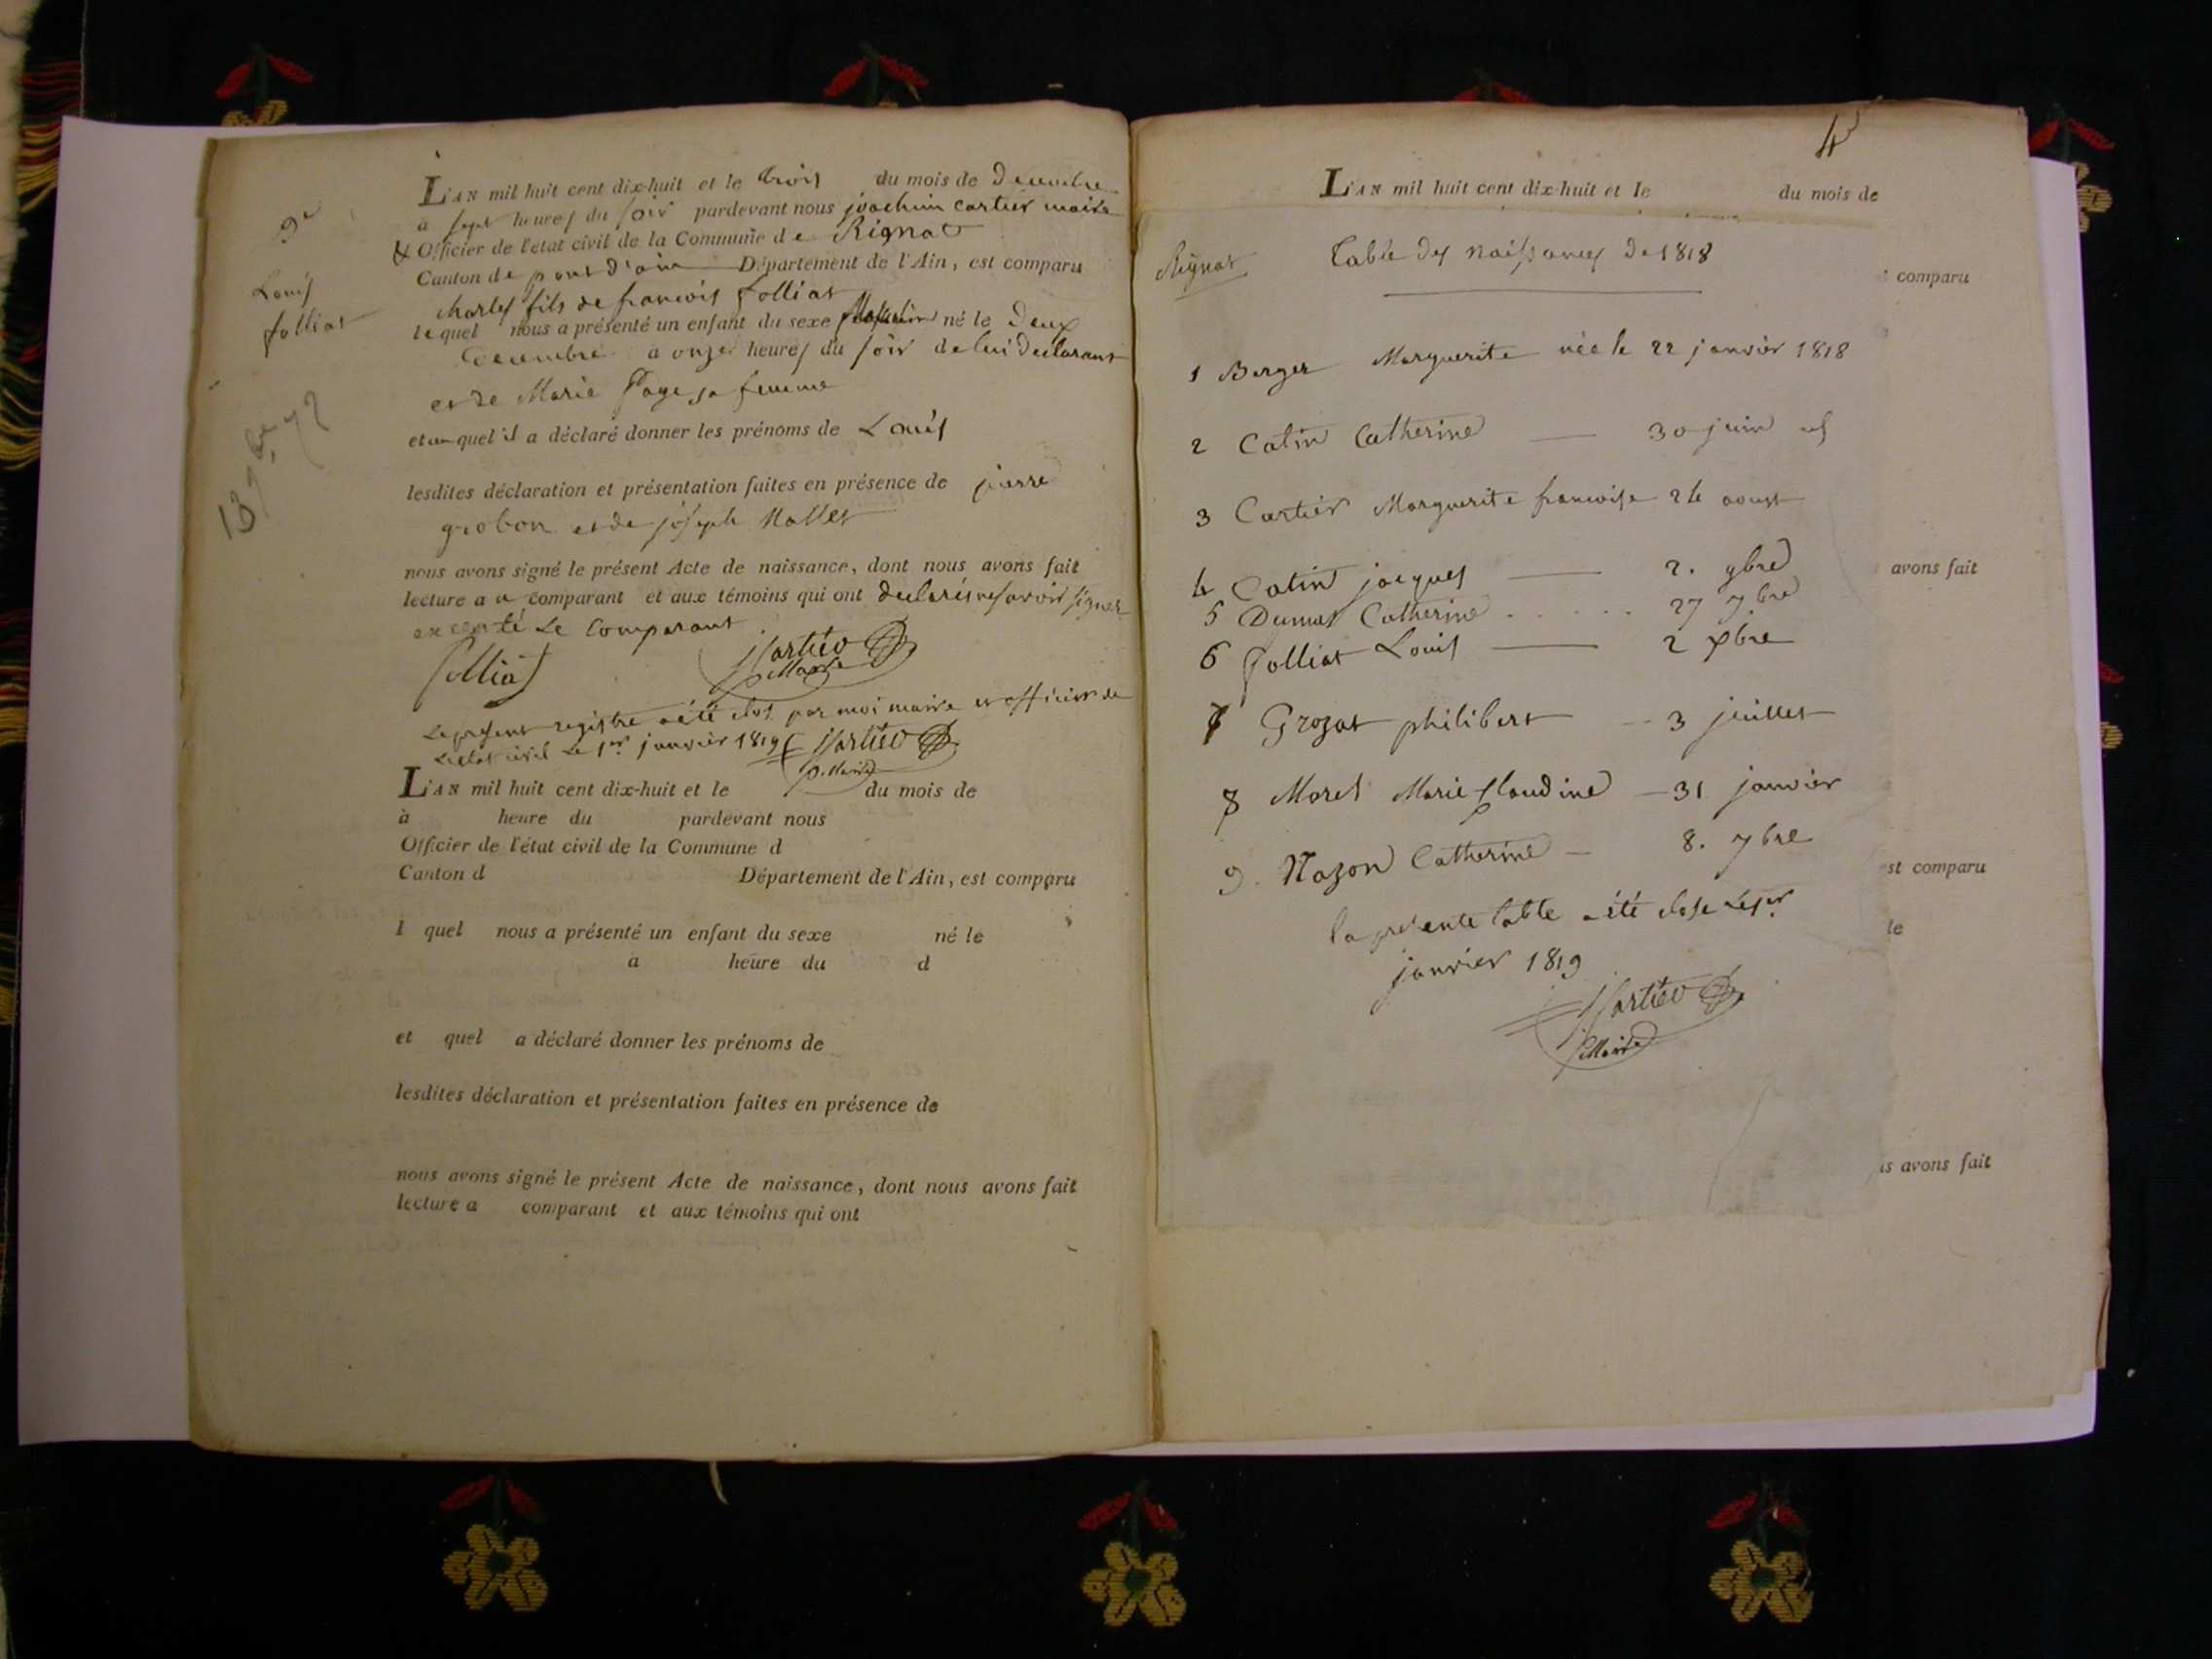 9e
Louis
folliat
L'AN mil huit cent dix-huit et le trois du mois de decembre
a sept heures du soir pardevant nous joachim Cartier maire
& Officier de l'état civil de la Commune de Rignat
Canton de pont d'ain Département de l'Ain, est comparu
charles fils de francois folliat
lequel nous a présenté un enfant du sexe Masculin né le deux
decembre a onze heures du soir de lui declarant
et de Marie Page sa femme
et auquel il a déclaré donner les prénoms de Louis
lesdites déclaration et présentation faites en présence de pierre
grobon et de joseph
nous avons signé le présent Acte de naissance, dont nous avons fait
lecture au comparant et aux témoins qui ont declarés ne savoir signer
excepté Le Comparant
folliat
J Cartier
Maire
Le present registre a été clos par moi maire et officier de
L'etat civil Le 1er janvier 1819 J Cartier
Maire
L'AN mil huit cent dix-huit et le du mois de
à heure du pardevant nous
Officier de l'état civil de la Commune d
Canton d Département de l'Ain, est comparu
l quel nous a présenté un enfant du sexe né le
a heure du d
et quel a déclaré donner les prénoms de
lesdites déclaration et présentation faites en présence de
nous avons signé le présent Acte de naissance, dont nous avons fait
lecture a comparant et aux témoins qui ont
4
L'AN mil huit cent dix-huit et le du mois de
Rignat
Table des naissances de 1818
comparu
1 Berger Marguerite née le 22 janvier 1818
2 Catin Catherine — 30 juin
3 Cartier Marguerite francoise 24 aoust
4 Catin jacques — 2. 9bre
avons fait
5 Dumas Catherine ..... 27 7bre
6 folliat Louis — 2 xbre
7 Grozat philibert — 3 juillet
8 Morel Marie Claudine — 31 janvier
9. Nazon Catherine — 8. 7bre
est comparu
la présente table a été close Le 1er
le
janvier 1819
J Cartier
Maire
avons fait